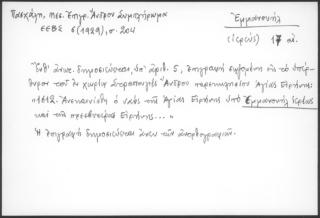 Πασχάλη, Μεσ. Ἐπιγρ. Ἄνδρου Συμπλήρωμα
ΕΕΒΣ 6 (1929), σ. 204
Ἐμμανουήλ
(ἱερεύς) 17 αἰ.
Ἔνθ' ἀνωτ. δημοσιεύεται, ὑπ' ἀριθ. 5, ἐπιγραφὴ σῳζομένη εἰς τὸ ὑπέρ-
θυρον τοῦ ἐν χωρίῳ Ἄνδρου παρεκκλησίου Ἁγίας Εἰρήνης:
"1612. Ἀνεκαινίσθη ὁ ναὸς τῆς Ἁγίας Εἰρήνης ὑπὸ Ἐμμανουὴλ ἱερέως
καὶ τῆς πρεσβυτέρας Εἰρήνης..."
Ἡ ἐπιγραφὴ δημοσιεύεται ἄνευ τῶν ἀνορθογραφιῶν.